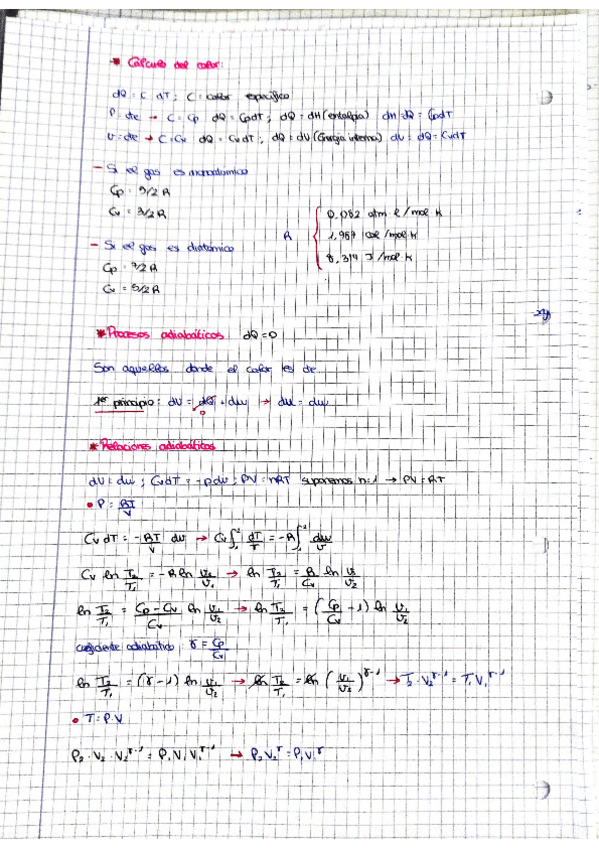 * Cálculo del calor:
dQ = C dT ; C = calor específico
P = cte → C = Cp dQ = CpdT ; dQ = dH (entalpía) dH = dQ = CpdT
V = cte → C = Cv dQ = CvdT ; dQ = dU (Energía interna) dU = dQ = CvdT
- Si el gas es monoatómico
Cp = 5/2 R
Cv = 3/2 R
- Si el gas es diatómico
Cp = 7/2 R
Cv = 5/2 R
R { 0,082 atm l/mol K
1,987 cal/mol K
8,314 J/mol K
* Procesos adiabáticos dQ = 0
Son aquellos donde el calor es cte
1er principio: dU = dQ + dw → dU = dw
0
* Relaciones adiabáticas
dU = dw ; CvdT = -pdv ; PV = nRT suponemos n=1 → PV = RT
• P = RT/V
Cv dT = -RT/V dv → Cv ∫₁² dT/T = -R ∫₁² dv/v
Cv ln T2/T1 = -R ln V2/V1 → ln T2/T1 = R/Cv ln V1/V2
ln T2/T1 = Cp - Cv/Cv ln V1/V2 → ln T2/T1 = (Cp/Cv - 1) ln V1/V2
coeficiente adiabático γ = Cp/Cv
ln T2/T1 = (γ-1) ln V1/V2 → ln T2/T1 = ln (V1/V2)^γ-1 → T2 · V2^γ-1 = T1 V1^γ-1
• T = P·V
P2 · V2 · V2^γ-1 = P1 V1 V1^γ-1 → P2 V2^γ = P1 V1^γ